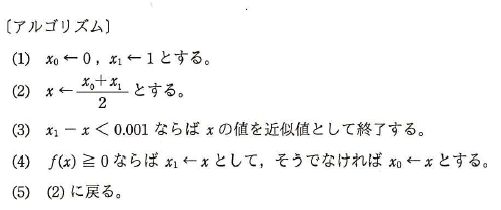 〔アルゴリズム〕
(1) x₀ ← 0，x₁ ← 1 とする。
(2) x ← (x₀+x₁)/2 とする。
(3) x₁ − x < 0.001 ならば x の値を近似値として終了する。
(4) f(x) ≧ 0 ならば x₁ ← x として，そうでなければ x₀ ← x とする。
(5) (2) に戻る。